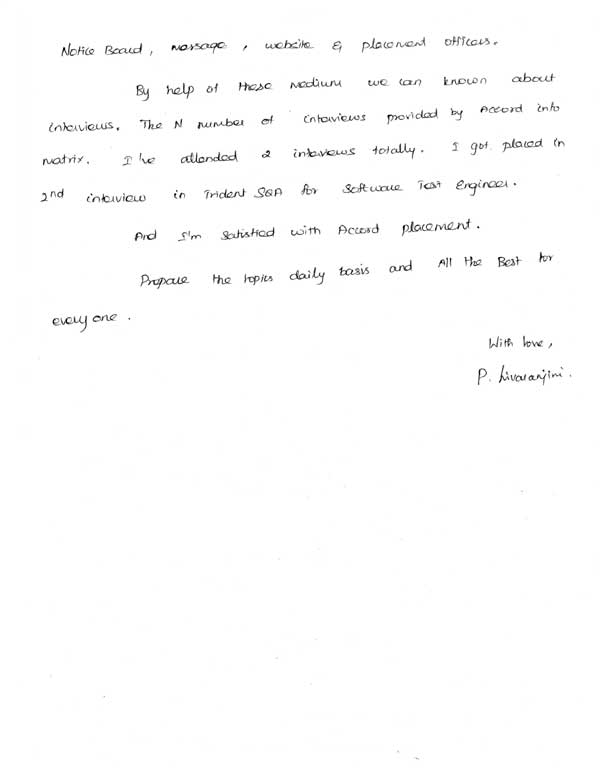 Notice Board, massage, website & placement officers.
By help of these medium we can known about
interviews. The N number of interviews provided by Accord info
matrix. I've attended 2 interviews totally. I got placed in
2nd interview in Trident SQA for Software Test Engineer.
And I'm Satisfied with Accord placement.
Prepare the topics daily basis and All the Best for
everyone.
With love,
P.